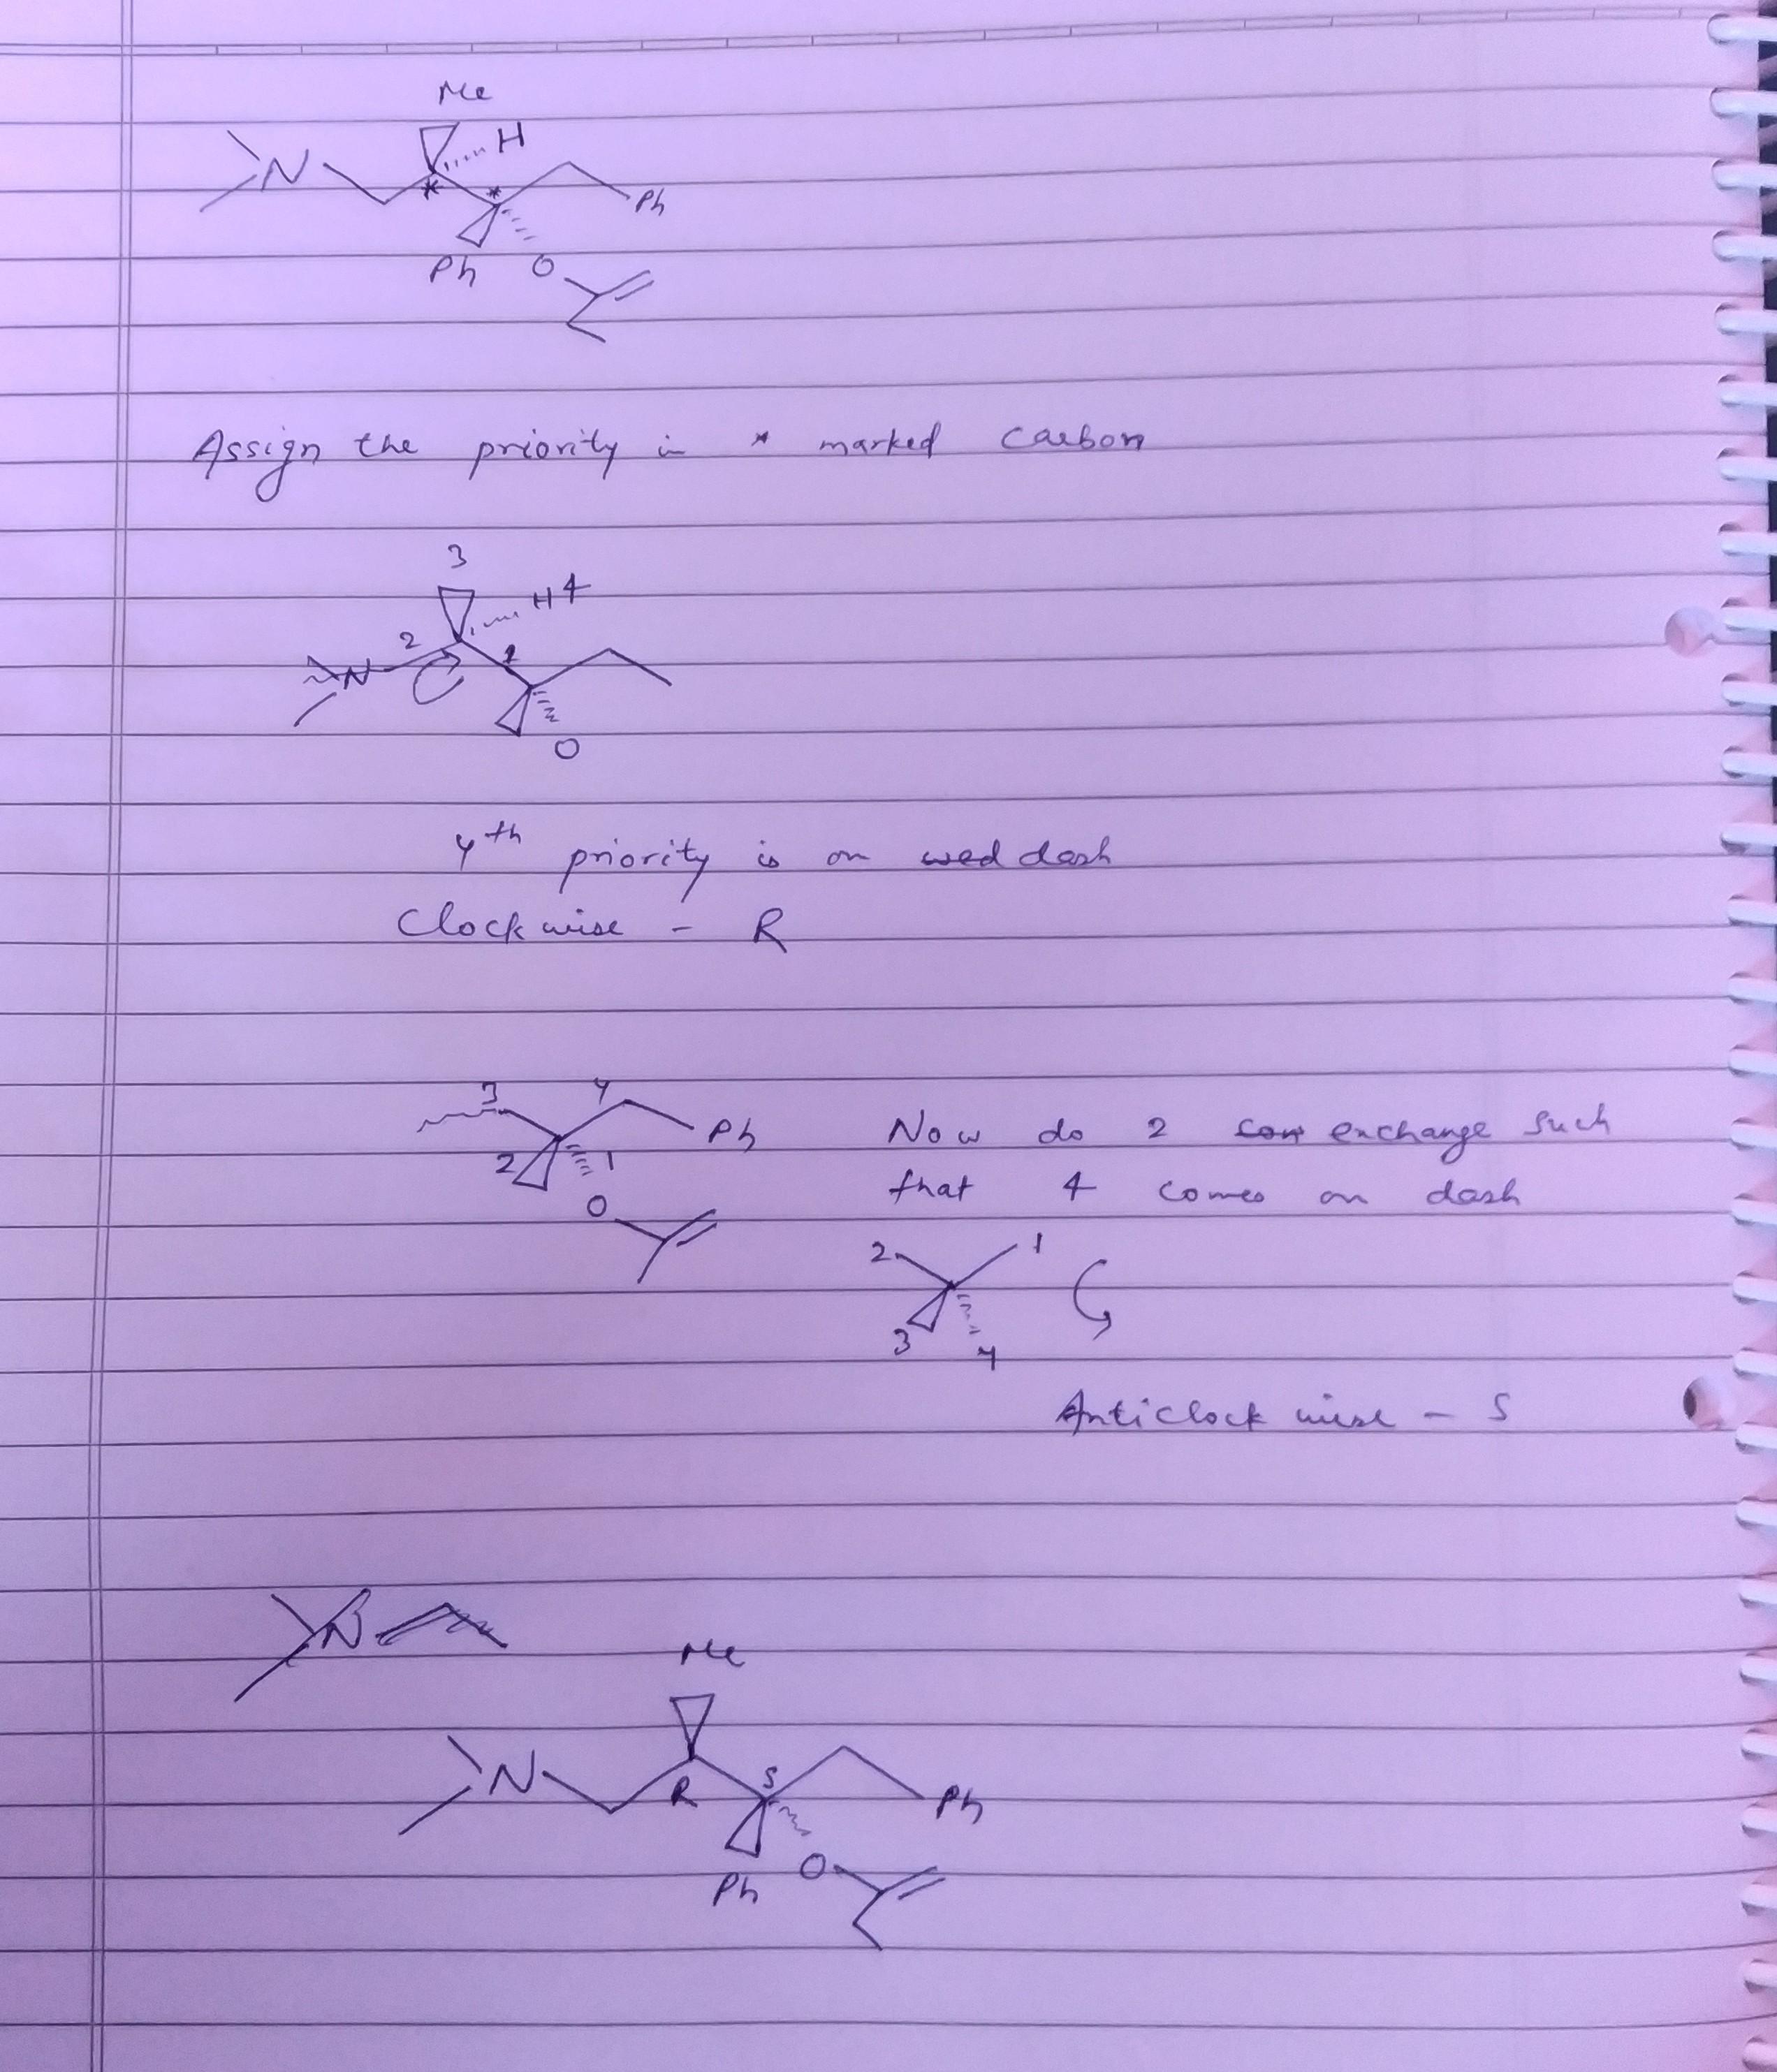 Me
H
N
*
*
Ph
Ph
O
Assign the priority in * marked carbon
3
H 4
2
1
N
O
4th priority is on wed dash
Clockwise - R
3
4
Ph
2
1
O
Now do 2 exchange such
that 4 comes on dash
2
1
3
4
Anticlockwise - S
N
Me
N
R
S
Ph
Ph
O